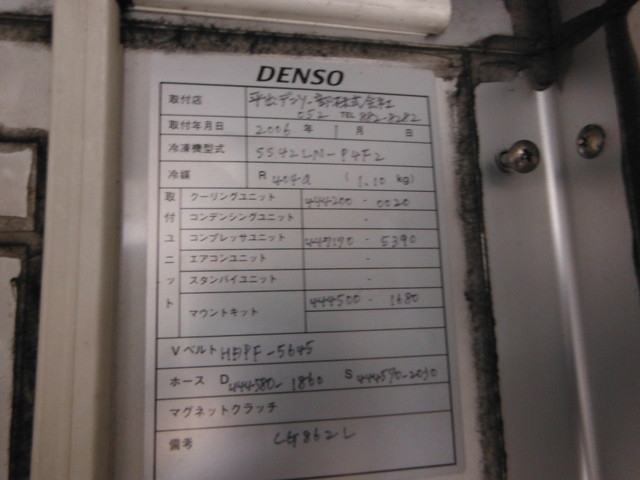 DENSO
取付店 平出デンソー部株式会社
052 TEL 882-8282
取付年月日 2006 年 1 月 日
冷凍機型式 5542LN-P4F2
冷媒 R 404a ( 1.10 kg)
取付ユニット
クーリングユニット 444200 - 0020
コンデンシングユニット -
コンプレッサユニット 447190 - 5390
エアコンユニット -
スタンバイユニット -
マウントキット 444500 - 1680
Vベルト HDPF-5645
ホース D 444580-1860 S 444590-2030
マグネットクラッチ
備考 LG862L